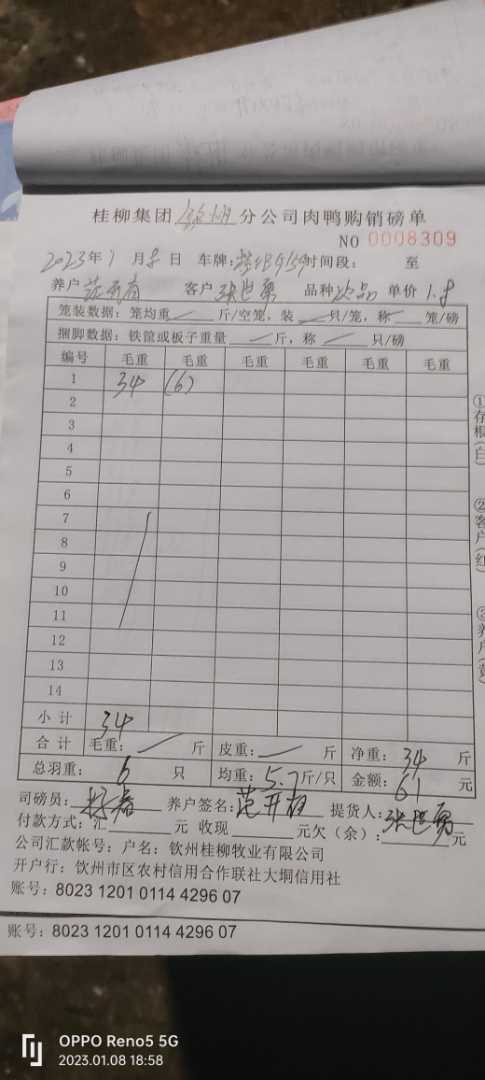 桂柳集团 钦州 分公司肉鸭购销磅单
NO 0008309
2023年1月8日 车牌: 时间段: 至
养户 范开有 客户 张世勇 品种 次品 单价 1.8
笼装数据:笼均重 斤/空笼,装 只/笼,称 笼/磅
捆脚数据:铁筐或板子重量 斤,称 只/磅
编号 毛重 毛重 毛重 毛重 毛重 毛重
1 34 (6)
2
3
4
5
6
7
8
9
10
11
12
13
14
小计 34
合计 毛重: 斤 皮重: 斤 净重: 34 斤
总羽重: 6 只 均重: 5.7 斤/只 金额: 61 元
司磅员: 养户签名: 范开有 提货人: 张世勇
付款方式:汇 元 收现 元欠(余): 元
公司汇款帐号:户名:钦州桂柳牧业有限公司
开户行:钦州市区农村信用合作联社大垌信用社
账号:8023 1201 0114 4296 07
账号:8023 1201 0114 4296 07
①存根(白)
②客户(红)
③养户(黄)
OPPO Reno5 5G
2023.01.08 18:58